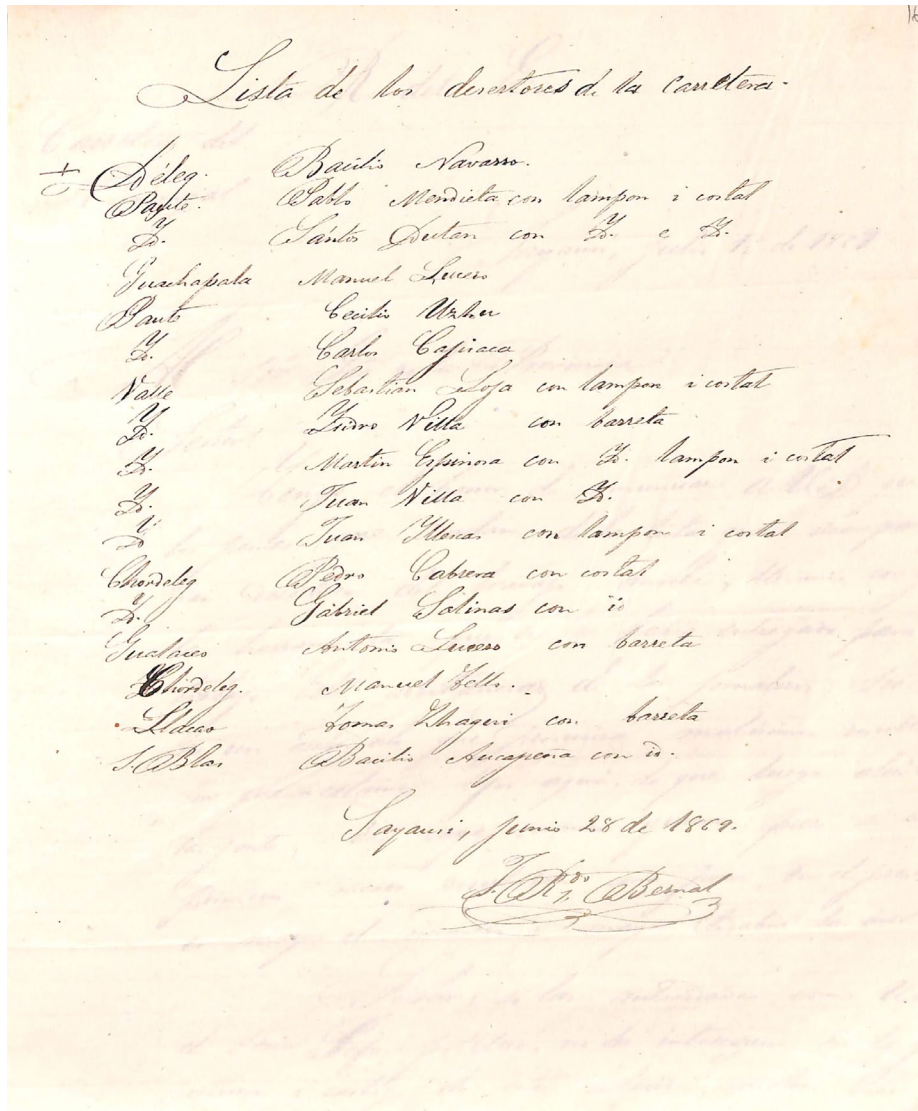 Lista de los desertores de la carretera.
Déleg. Bacilio Navarro.
Paute. Pablo Mendieta con lampon i costal
Yd. Sántos Dutan con Yd. e Yd.
Guachapala Manuel Lucero
Paute Cecilio Uzhu
Yd. Carlos Cajiraca
Valle Sebastian Loja con lampon i costal
Yd. Ysidro Villa con barreta
Yd. Martin Espinosa con Yd. lampon i costal
Yd. Juan Villa con Yd.
Yd. Juan Yllescas con lampon i costal
Chordeleg Pedro Cabrera con costal
Yd. Gabriel Salinas con id
Gualaceo Antonio Lucero con barreta
Chordeleg. Manuel Tello.
Lldcao Tomas Zhagui con barreta
S. Blas Bacilio Aucapeña con id.
Sayausi, junio 28 de 1869.
J. Rdo. J. Bernal